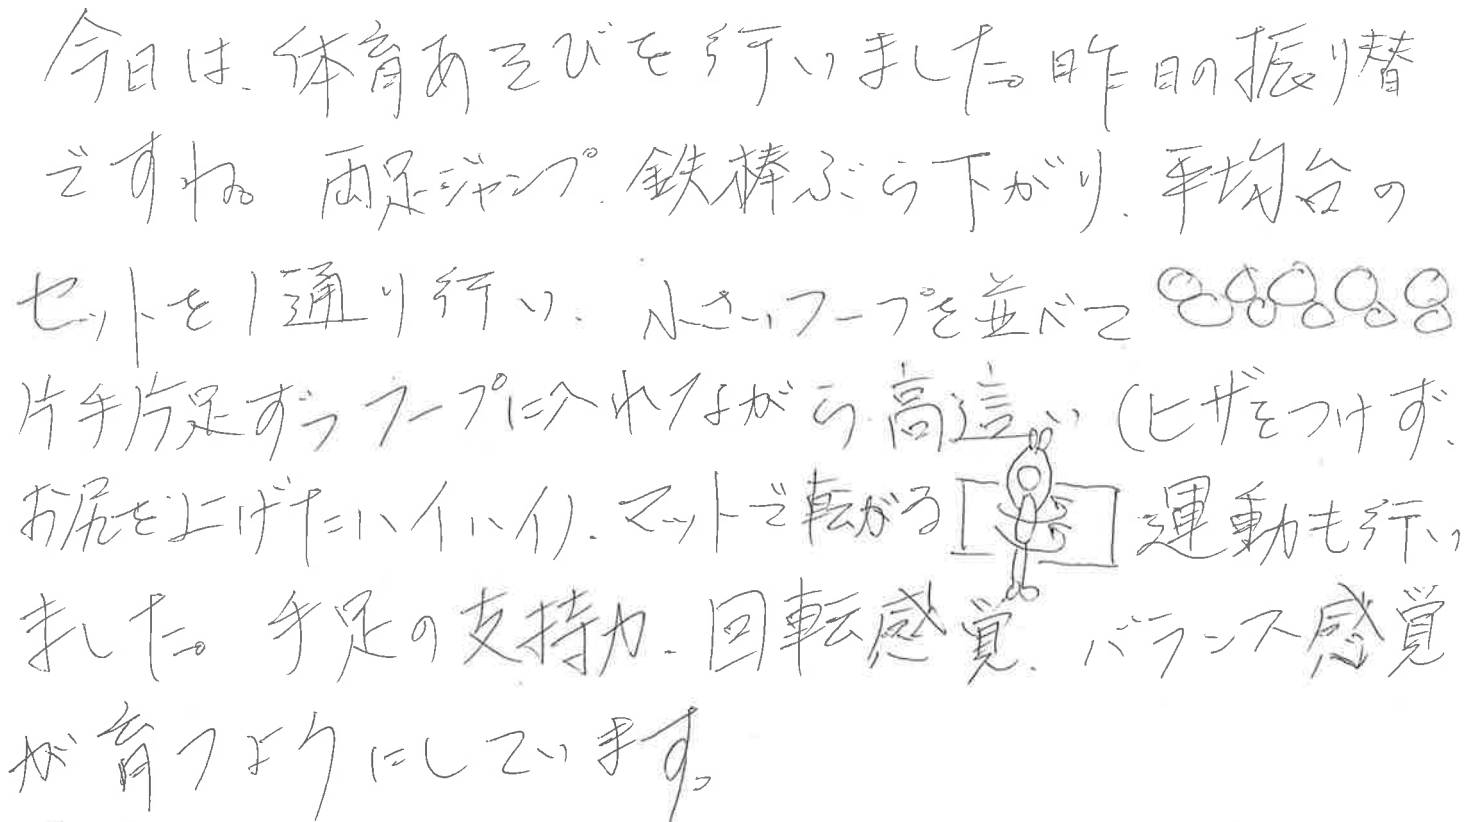 今日は、体育あそびを行いました。昨日の振り替
ですね。両足ジャンプ、鉄棒ぶら下がり、平均台の
セットを1通り行い、小さいフープを並べて
片手片足ずつフープに入れながら高這い(ヒザをつけず、
お尻を上げたハイハイ)、マットで転がる運動も行い
ました。手足の支持力、回転感覚、バランス感覚
が育つようにしています。